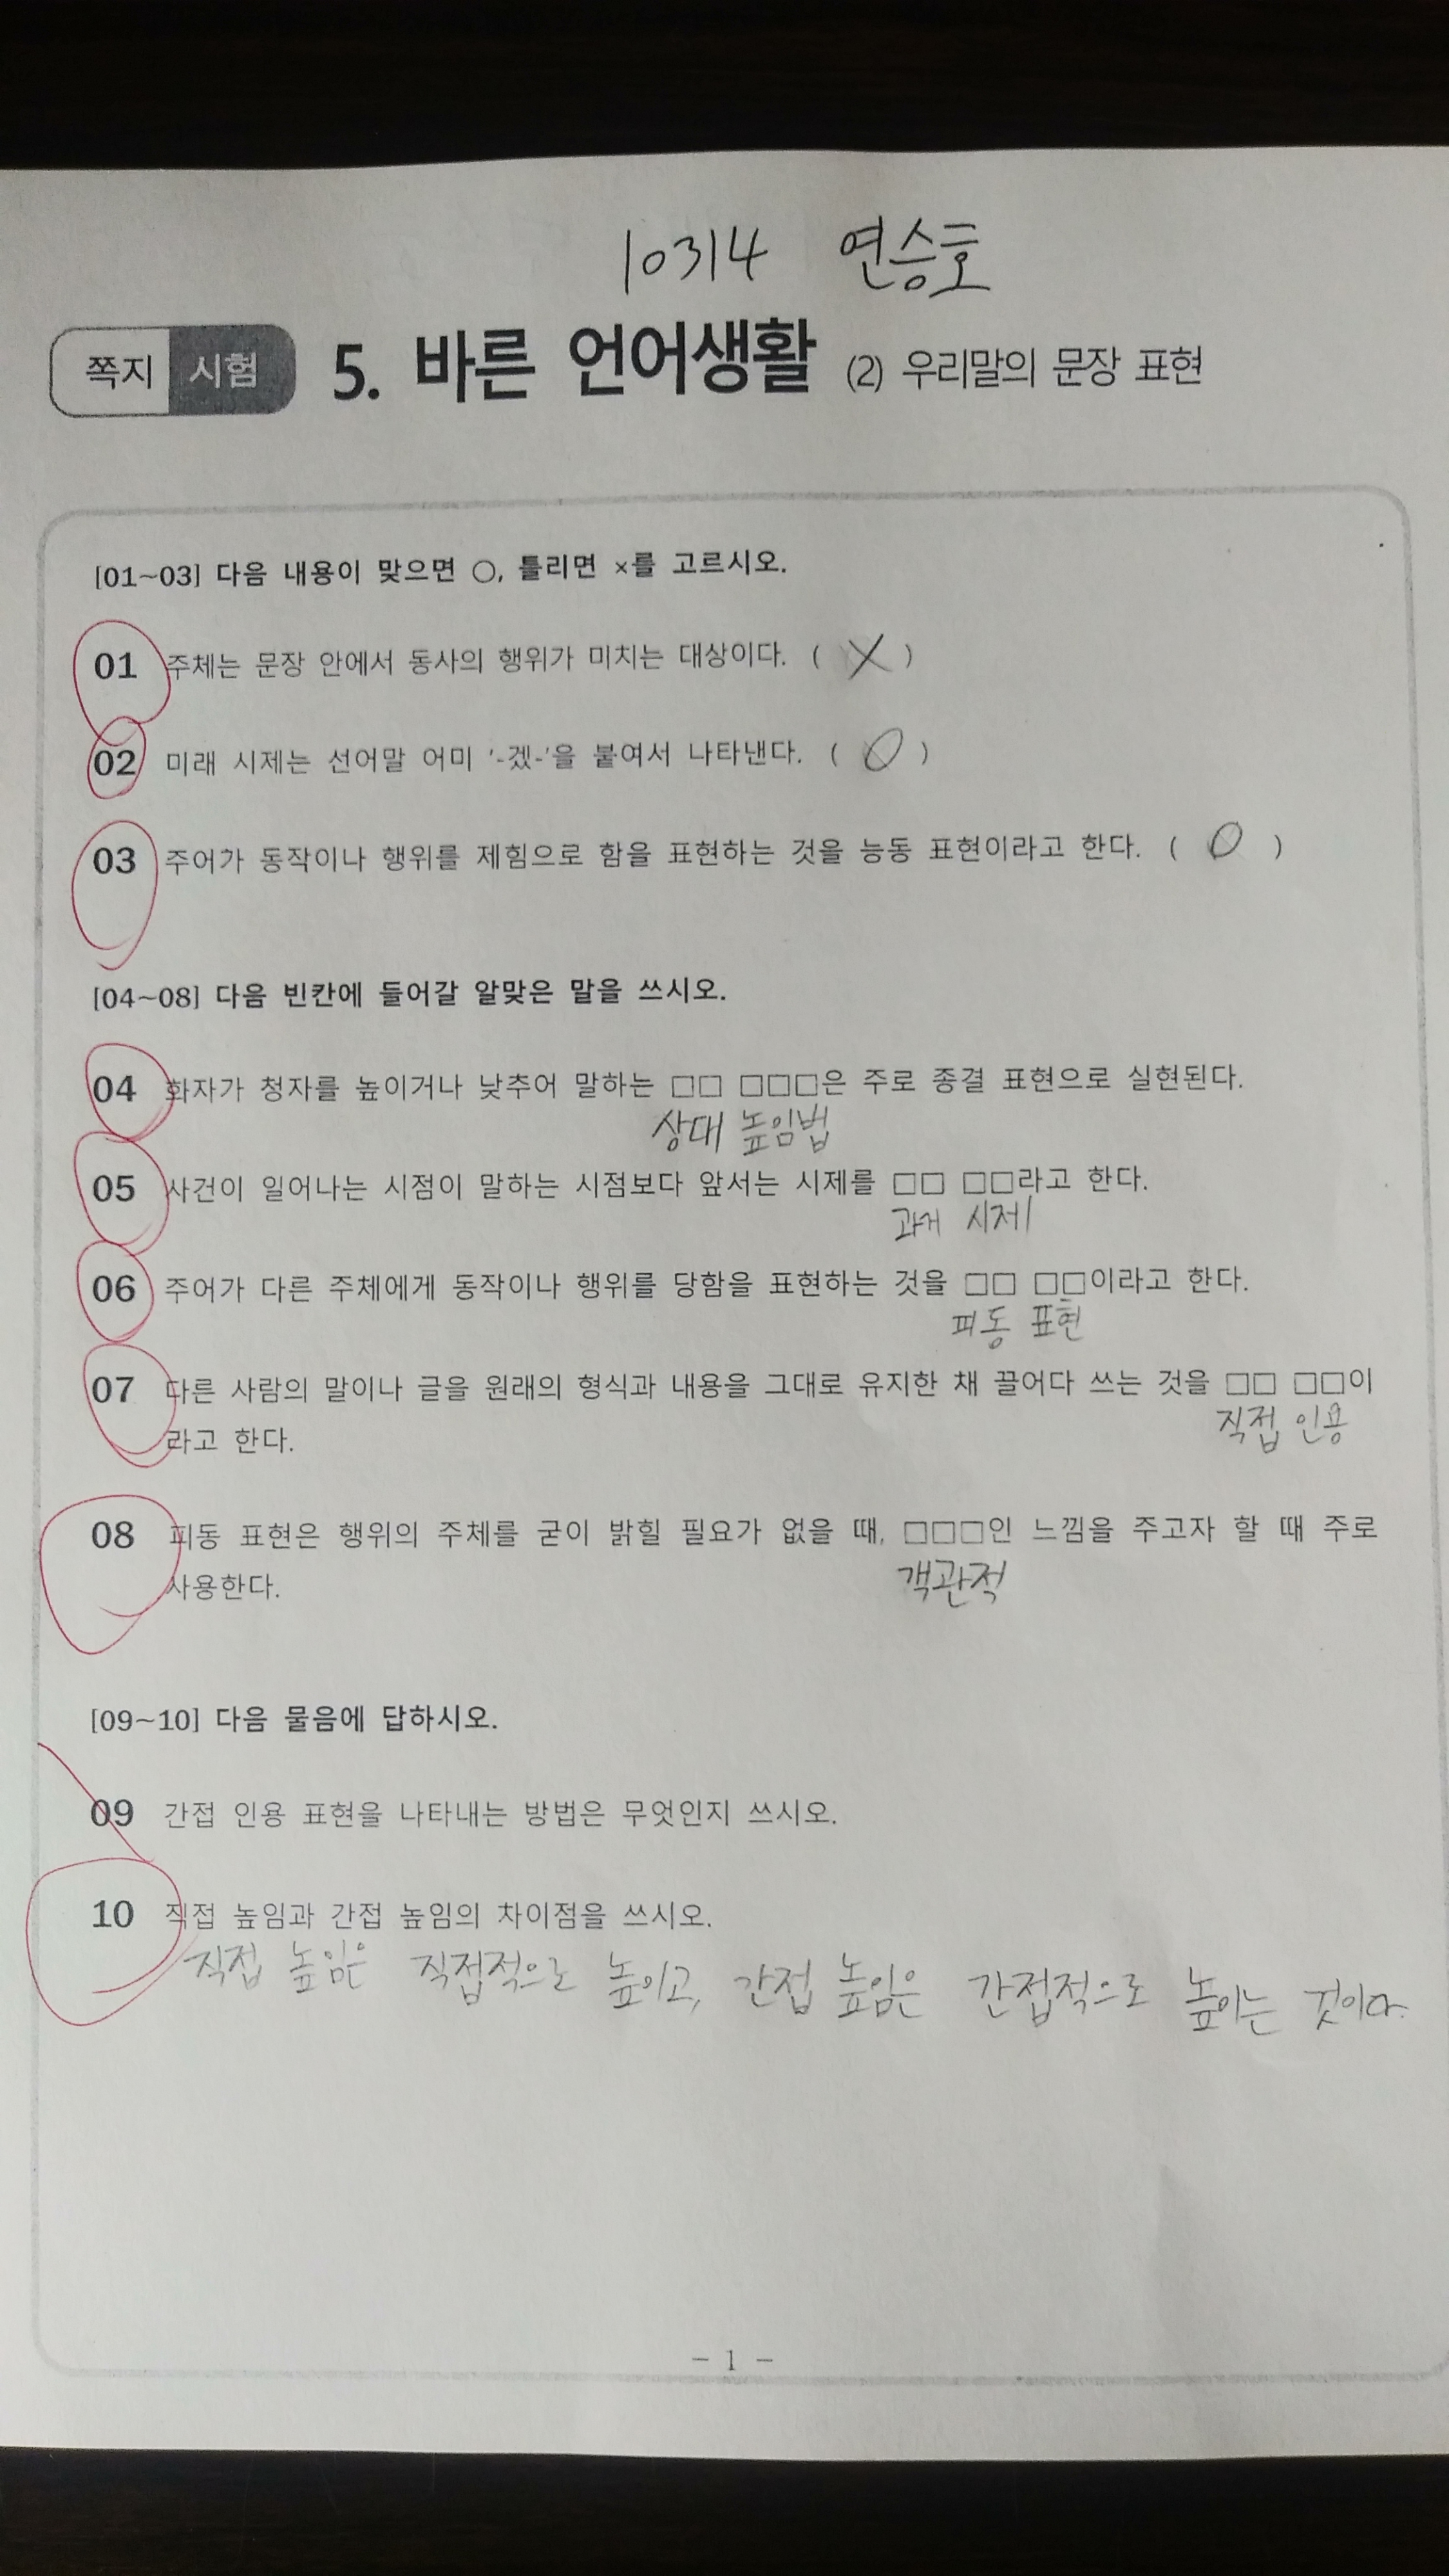 10314 연승호
쪽지 시험 5. 바른 언어생활 (2) 우리말의 문장 표현
[01~03] 다음 내용이 맞으면 ○, 틀리면 ×를 고르시오.
01 주체는 문장 안에서 동사의 행위가 미치는 대상이다. ( X )
02 미래 시제는 선어말 어미 '-겠-'을 붙여서 나타낸다. ( O )
03 주어가 동작이나 행위를 제힘으로 함을 표현하는 것을 능동 표현이라고 한다. ( O )
[04~08] 다음 빈칸에 들어갈 알맞은 말을 쓰시오.
04 화자가 청자를 높이거나 낮추어 말하는 □□ □□□은 주로 종결 표현으로 실현된다.
상대 높임법
05 사건이 일어나는 시점이 말하는 시점보다 앞서는 시제를 □□ □□라고 한다.
과거 시제
06 주어가 다른 주체에게 동작이나 행위를 당함을 표현하는 것을 □□ □□이라고 한다.
피동 표현
07 다른 사람의 말이나 글을 원래의 형식과 내용을 그대로 유지한 채 끌어다 쓰는 것을 □□ □□이
직접 인용
라고 한다.
08 피동 표현은 행위의 주체를 굳이 밝힐 필요가 없을 때, □□□인 느낌을 주고자 할 때 주로
객관적
사용한다.
[09~10] 다음 물음에 답하시오.
09 간접 인용 표현을 나타내는 방법은 무엇인지 쓰시오.
10 직접 높임과 간접 높임의 차이점을 쓰시오.
직접 높임은 직접적으로 높이고, 간접 높임은 간접적으로 높이는 것이다.
- 1 -